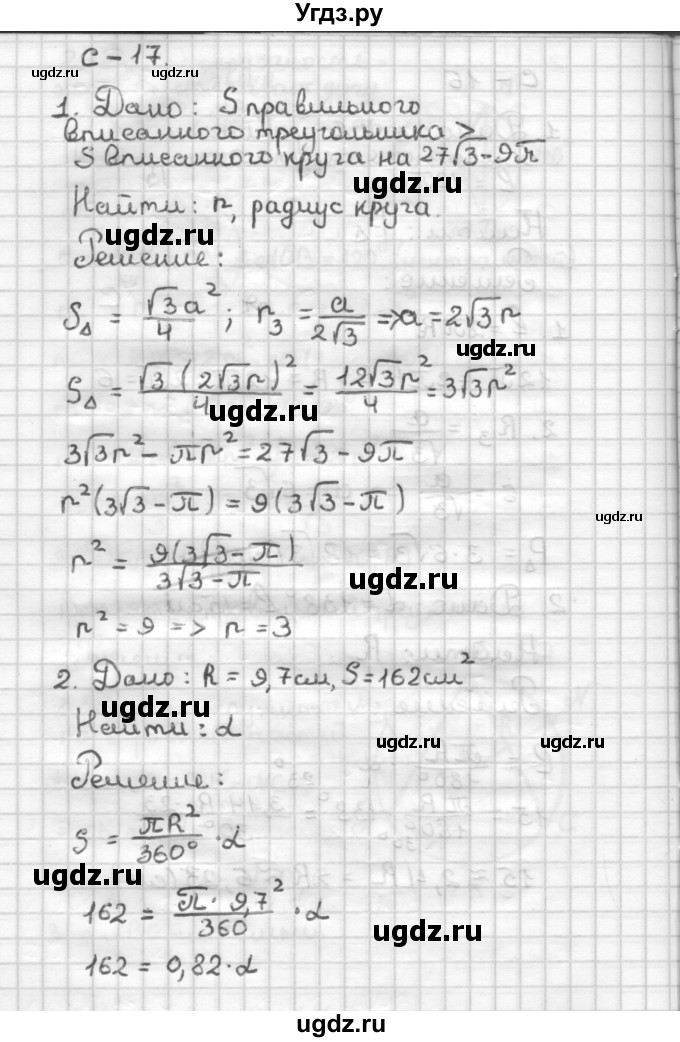 Угдз.ру
С - 17.
ugdz.ru ugdz.ru
1. Дано: S правильного
вписанного треугольника >
S вписанного круга на 27√3-9π
ugdz.ru
Найти: r, радиус круга.
ugdz.ru
Решение:
S△ = √3a²/4 ; r₃ = a/2√3 => a = 2√3r
ugdz.ru
S△ = √3(2√3r)²/4 = 12√3r²/4 = 3√3r²
ugdz.ru
3√3r² - πr² = 27√3 - 9π
r²(3√3 - π) = 9(3√3 - π)
ugdz.ru
r² = 9(3√3 - π)/3√3 - π
ugdz.ru
r² = 9 => r = 3
2. Дано: R = 9,7см, S = 162см²
ugdz.ru
Найти: α
ugdz.ru ugdz.ru
Решение:
S = πR²/360° · α
ugdz.ru
162 = π · 9,7²/360 · α
ugdz.ru
162 = 0,82 · α
ugdz.ru